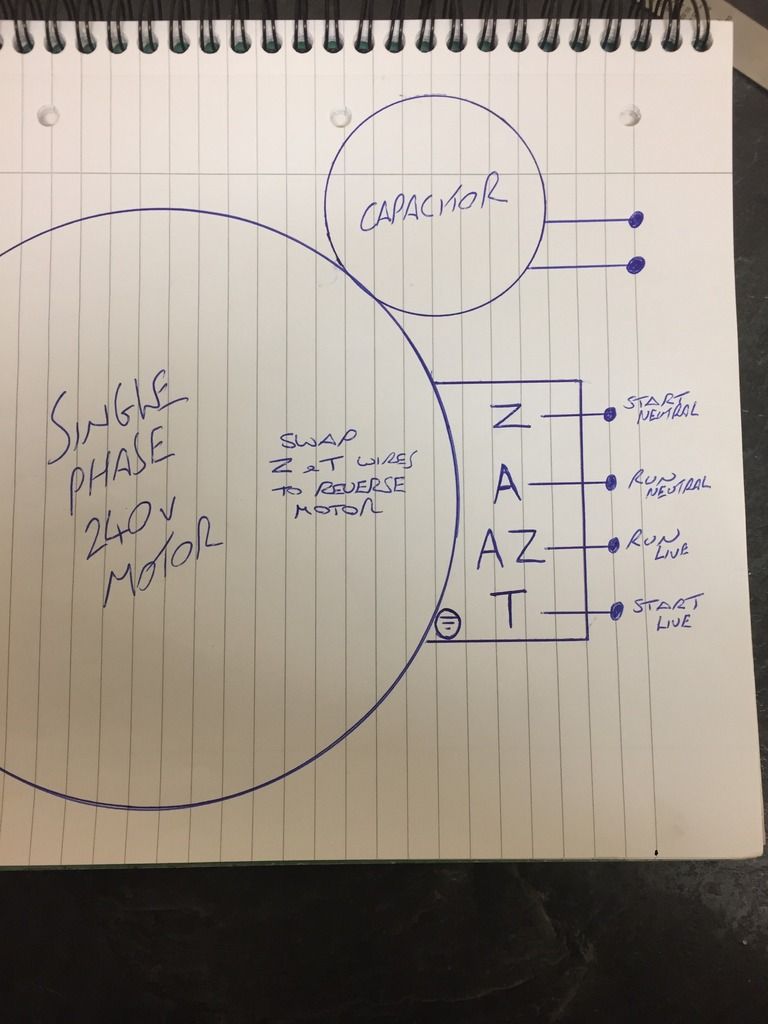 CAPACITOR
SINGLE
PHASE
240V
MOTOR
SWAP
Z & T WIRES
TO REVERSE
MOTOR
Z
START
NEUTRAL
A
RUN
NEUTRAL
AZ
RUN
LIVE
T
START
LIVE